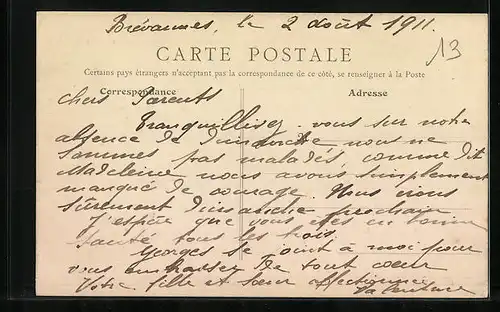 Brévannes, le 2 août 1911.
13
CARTE POSTALE
Certains pays étrangers n'acceptant pas la correspondance de ce côté, se renseigner à la Poste
Correspondance
Adresse
chers Parents
Tranquillisez-vous sur notre
absence de dimanche nous ne
sommes pas malades comme dit
Madeleine nous avons simplement
manqué de courage. Nous irons
sûrement dimanche prochain
J'espère que vous êtes en bonne
santé tous les trois
Georges se joint à moi pour
vous embrasser de tout cœur
Votre fille et sœur affectionnée